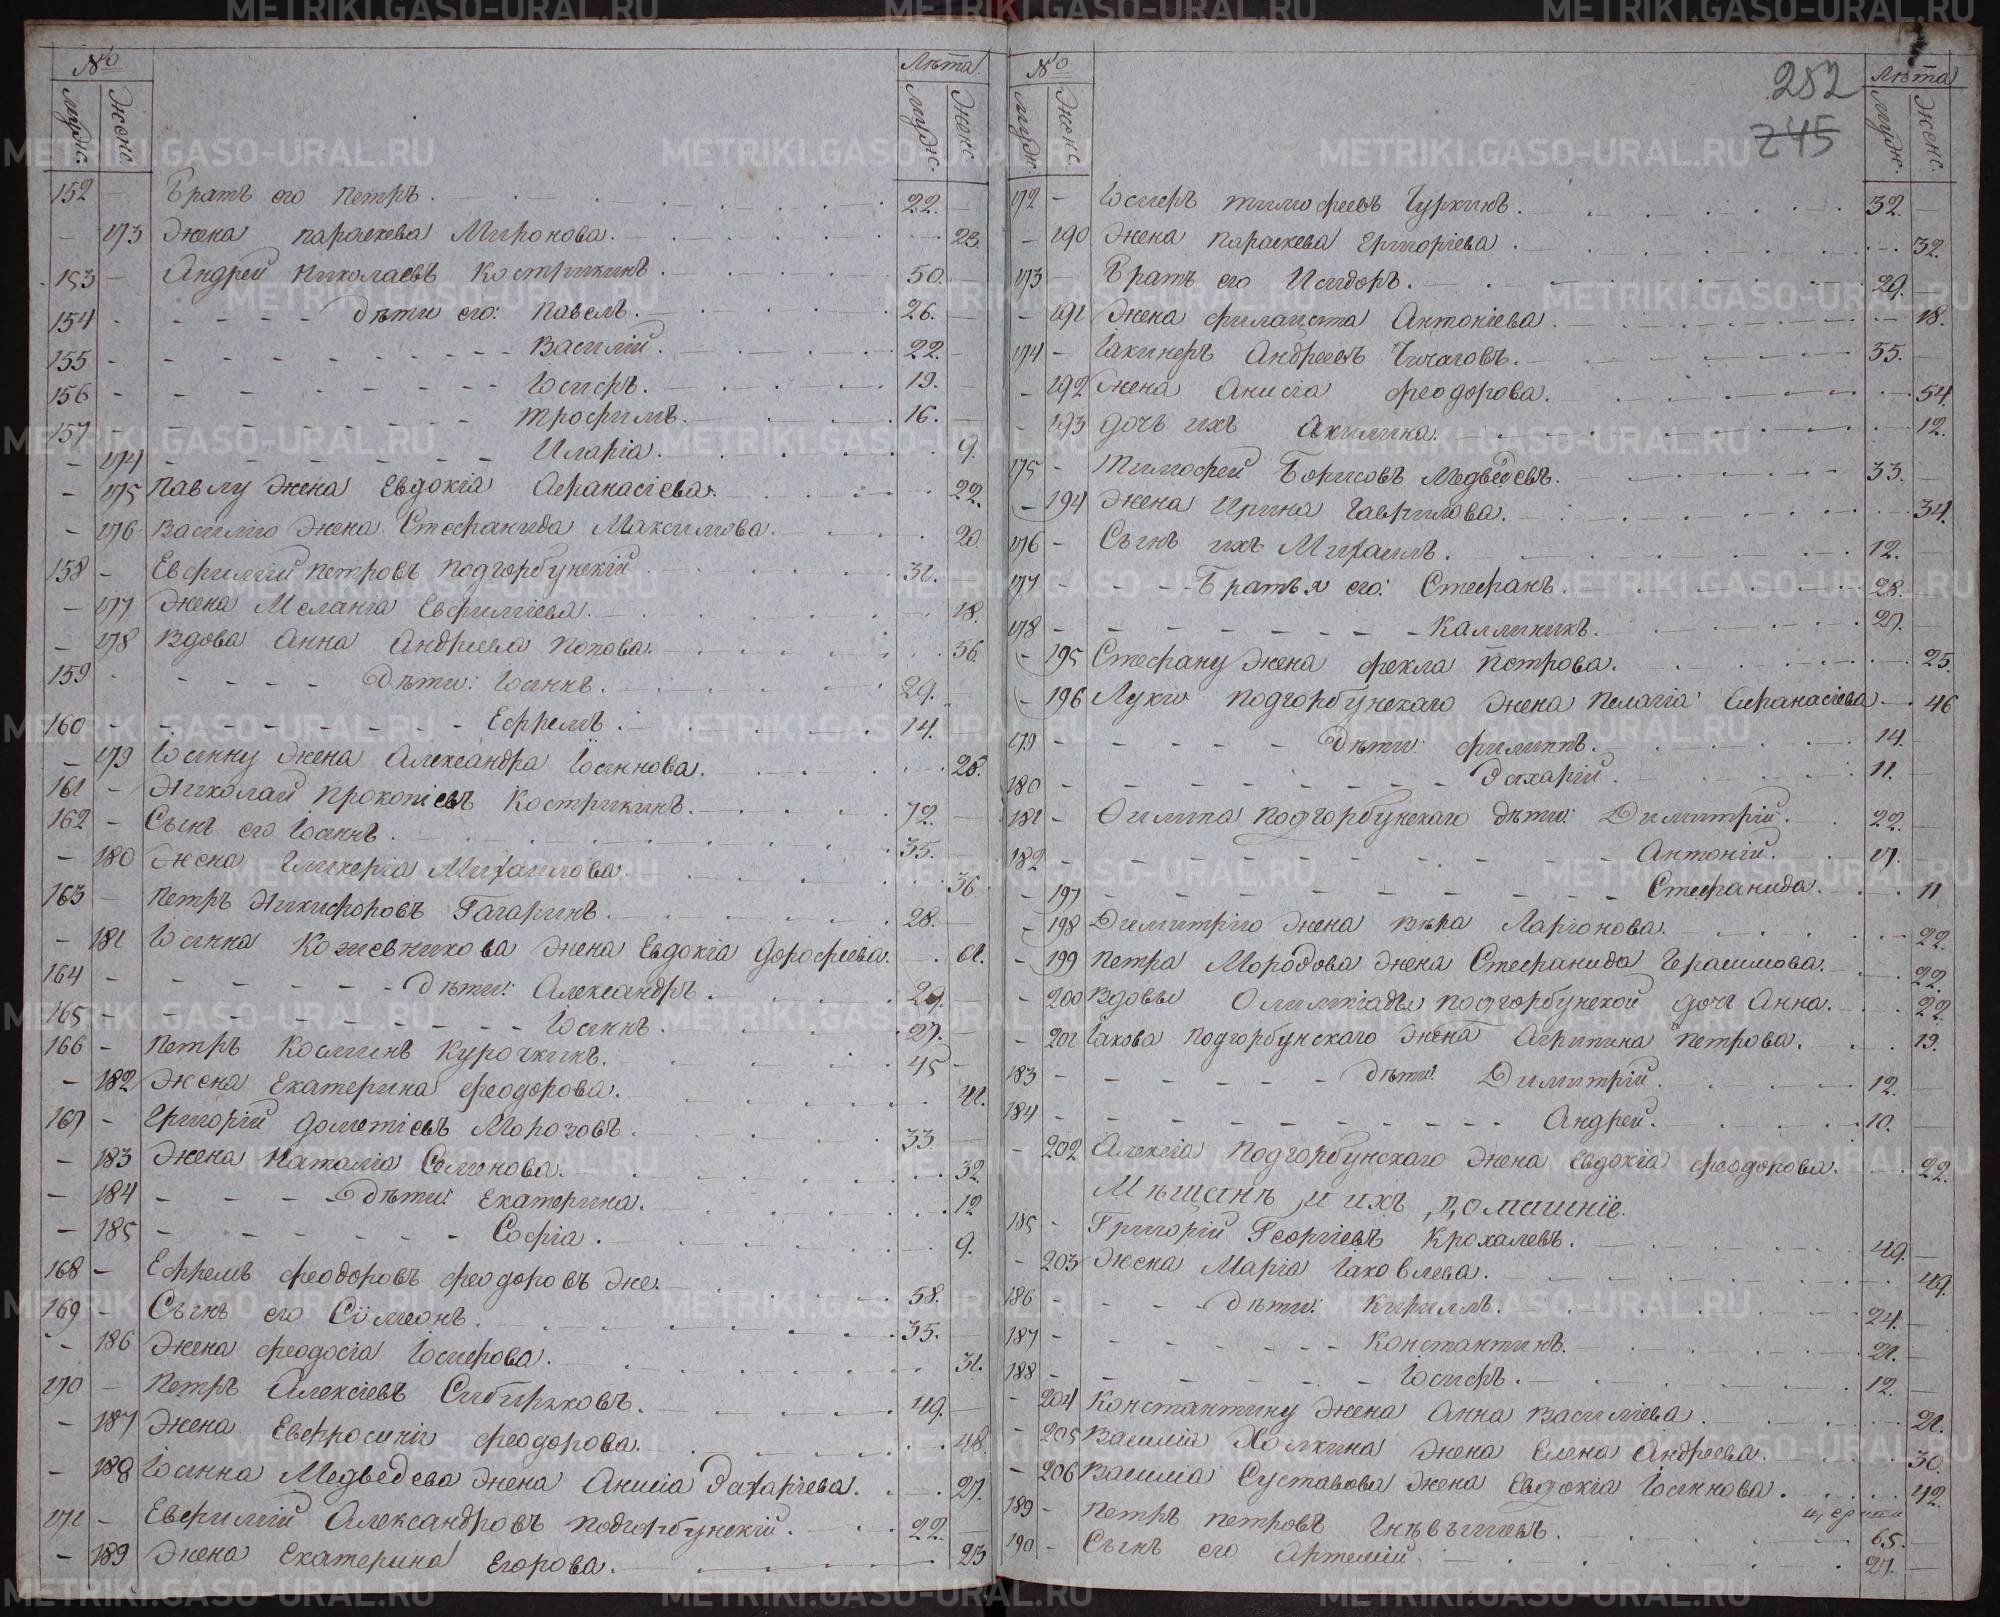 №
Лѣта
мужс.
Женс.
мужс.
Женс.
152 — Братъ его Петръ. 22. —
— 173 Жена параскева Миронова. — 23.
153 — Андрей Николаевъ Кострикинъ. 50. —
154 - - - - - дѣти его: Павелъ. 26. —
155 - - - - - Василій. 22. —
156 - - - - - Іосифъ. 19. —
157 - - - - - Трофимъ. 16. —
— 174 - - - - - Иларіа. — 9.
— 175 Павлу Жена Евдокіа Афанасіева. — 22.
— 176 Василію Жена Стефанида Максимова. — 20
158 — Евфимій Петровъ Подгорбунскій 31. —
— 177 Жена Меланіа Евфиміева. — 18.
— 178 Вдова Анна Андреева Попова. — 56.
159 - - - - - Дѣти: Іоаннъ. 29. —
160 - - - - - Ефремъ. 14. —
— 179 Іоанну Жена Александра Іоаннова. — 28.
161 — Николай Прокопіевъ Кострикинъ. 72. —
162 — Сынъ его Іоаннъ. 35. —
— 180 Жена Гликеріа Михаилова. — 36
163 — Петръ Никифоровъ Гагаринъ. 28. —
— 181 Іоанна Кожевникова Жена Евдокіа Дорофеева. — 61.
164 - - - - - Дѣти: Александръ. 29. —
165 - - - - - Іоаннъ. 27. —
166 — Петръ Косминъ Курочкинъ. 45 —
— 182 Жена Екатерина Феодорова. — 41.
167 — Григорій Дометіевъ Морозовъ. 33. —
— 183 Жена Наталіа Семенова. — 32.
— 184 - - - - Дѣти: Екатерина. — 12
— 185 - - - - - Софіа. — 9.
168 — Ефремъ Феодоровъ Феодоровъ же. 58. —
169 — Сынъ его Сѵмеонъ. 35. —
— 186 Жена Феодосіа Іосифова. — 31.
170 — Петръ Алексіевъ Сибиряковъ. 49. —
— 187 Жена Евфросиніа Феодорова. — 48.
— 188 Іоанна Медведева Жена Анисіа Захаріева. — 27.
171 — Евфимій Александровъ Подгорбунскій. 22. —
— 189 Жена Екатерина Егорова. — 23
№
252
245
Лѣта
мужс.
Женс.
мужс.
Женс.
172 — Іосифъ Тимофеевъ Чуркинъ. 32. —
— 190 Жена Параскева Григоріева. — 32.
173 — Братъ его Исидоръ. 29. —
— 191 Жена Филацата Антоніева. — 18.
174 — Іакинфъ Андреевъ Чичаговъ. 55. —
— 192 Жена Анисіа Феодорова. — 54.
— 193 дочь ихъ Акилина. — 12.
175 — Тимофей Борисовъ Медвѣдевъ. 33. —
— 194 Жена Ирина Гаврилова. — 34.
176 — Сынъ ихъ Михаилъ. 12. —
177 - - - Братья его: Стефанъ. 28. —
178 - - - - - Каллиникъ. 21. —
— 195 Стефану Жена Фекла Петрова. — 25.
— 196 Лукіи Подгорбунскаго Жена Пелагіа Афанасіева — 46
179 - - - - - Дѣти: Филиппъ. 14. —
180 - - - - - Захарій. 11. —
181 — Филипа Подгорбунскаго дѣти: Димитрій. 22. —
182 - - - - - Антоній. 17. —
— 197 - - - - - Стефанида. — 11
— 198 Димитрію Жена Вѣра Ларіонова. — 22.
— 199 Петра Мородова Жена Стефанида Герасимова. — 22.
— 200 Вдовы Олимпіады Подгорбунской дочь Анна. — 22.
— 201 Іакова Подгорбунскаго Жена Агрипина Петрова. — 19.
183 - - - - - Дѣти: Димитрій. 12. —
184 - - - - - Андрей. 10. —
— 202 Алексіа Подгорбунскаго Жена Евдокіа Феодорова. — 22.
Мѣщанъ и ихъ домашніе.
185 — Григорій Георгіевъ Крохалевъ. 49. —
— 203 Жена Маріа Іаковлева. — 49.
186 - - - Дѣти: Кириллъ. 24. —
187 - - - - - Константинъ. 21. —
188 - - - - - Іосифъ. 12. —
— 204 Константину Жена Анна Василіева. — 21.
— 205 Василіа Холкина Жена Елена Андреева. — 30.
— 206 Василіа Суставова Жена Евдокіа Іоаннова. — 42.
189 — Петръ Петровъ Гнѣвышевъ. 65. —
190 — Сынъ его Артемій. 27. —
METRIKI.GASO-URAL.RU